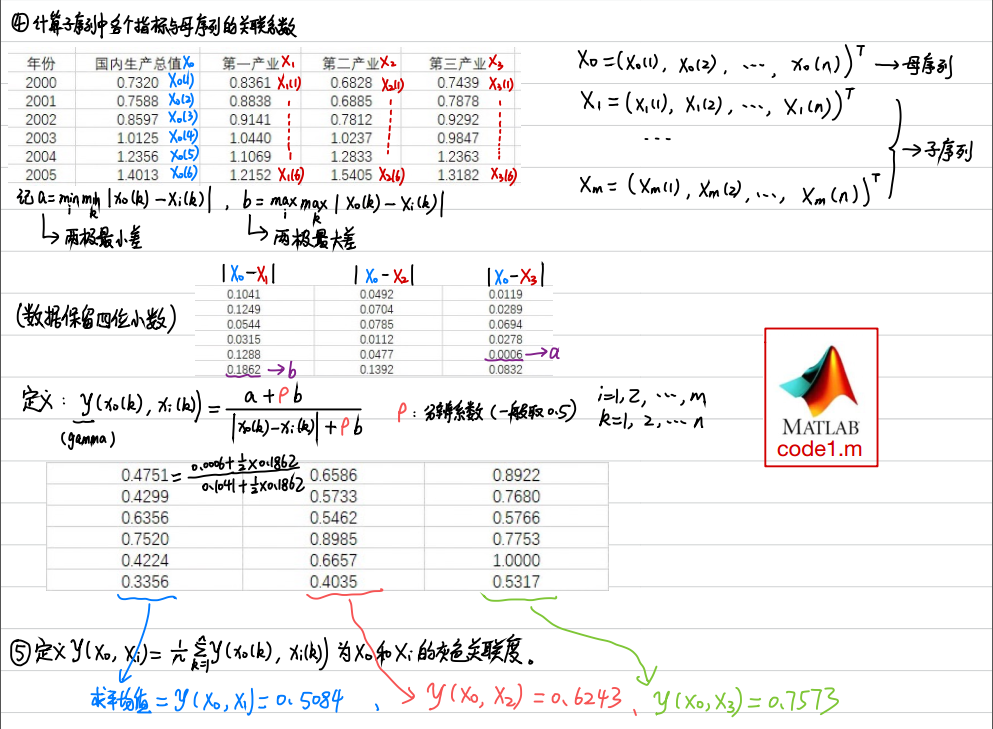 ④ 计算子序列中各个指标与母序列的关联系数
年份 国内生产总值X₀ 第一产业X₁ 第二产业X₂ 第三产业X₃
2000 0.7320 X₀(1) 0.8361 X₁(1) 0.6828 X₂(1) 0.7439 X₃(1)
2001 0.7588 X₀(2) 0.8838 0.6885 0.7878
2002 0.8597 X₀(3) 0.9141 0.7812 0.9292
2003 1.0125 X₀(4) 1.0440 1.0237 0.9847
2004 1.2356 X₀(5) 1.1069 1.2833 1.2363
2005 1.4013 X₀(6) 1.2152 X₁(6) 1.5405 X₂(6) 1.3182 X₃(6)
X₀=(x₀(1), x₀(2), ···, x₀(n))ᵀ → 母序列
X₁=(x₁(1), x₁(2), ···, x₁(n))ᵀ
···
→子序列
Xm=(xm(1), xm(2), ···, xm(n))ᵀ
记 a=min_i min_k |x₀(k)-xᵢ(k)|, b=max_i max_k |x₀(k)-xᵢ(k)|
两极最小差 两极最大差
|X₀-X₁| |X₀-X₂| |X₀-X₃|
(数据保留四位小数)
0.1041 0.0492 0.0119
0.1249 0.0704 0.0289
0.0544 0.0785 0.0694
0.0315 0.0112 0.0278
0.1288 0.0477 0.0006 →a
0.1862 →b 0.1392 0.0832
定义: y(x₀(k), xᵢ(k)) = (a+ρb)/(|x₀(k)-xᵢ(k)|+ρb) ρ: 分辨系数(一般取0.5) i=1,2,···,m
(gamma) k=1,2,···n
MATLAB
code1.m
0.4751 = (0.0006+½×0.1862)/(0.1041+½×0.1862) 0.6586 0.8922
0.4299 0.5733 0.7680
0.6356 0.5462 0.5766
0.7520 0.8985 0.7753
0.4224 0.6657 1.0000
0.3356 0.4035 0.5317
⑤定义 y(x₀, xᵢ)=1/n Σ_{k=1}^{n} y(x₀(k), xᵢ(k)) 为X₀和Xᵢ的灰色关联度。
求平均值=y(x₀,x₁)=0.5084、y(x₀,x₂)=0.6243、y(x₀,x₃)=0.7573